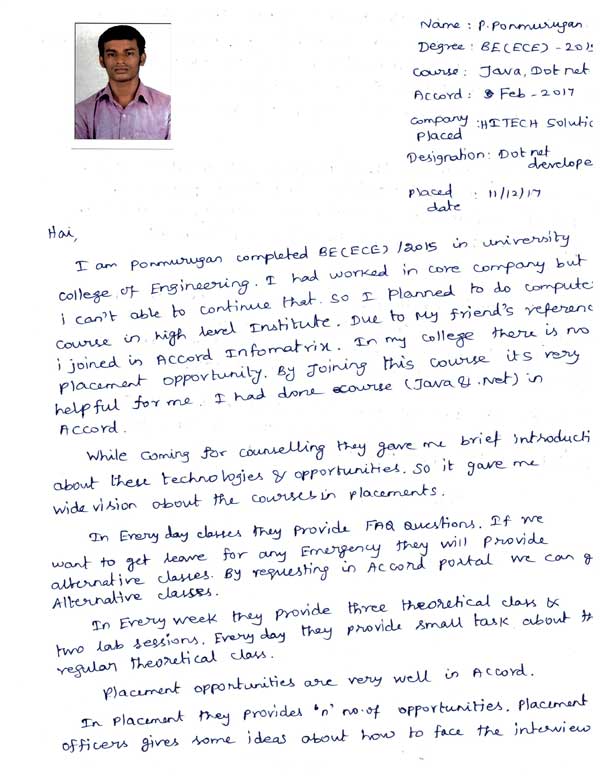 Name : P. Ponmurugan
Degree : BE(ECE) - 201
Course : Java, Dot net
Accord : Feb - 2017
Company Placed : HITECH Solutio
Designation : Dot net develope
Placed date : 11/12/17
Hai,
I am Ponmurugan completed BE(ECE) /2015 in university
college of Engineering. I had worked in core company but
i can't able to continue that. So I planned to do compute
course in high level Institute. Due to My friend's referenc
i joined in Accord Infomatrix. In my college there is no
placement opportunity. By Joining this course its very
helpful for me. I had done course (Java & .Net) in
Accord.
While coming for counselling they gave me brief introducti
about these technologies & opportunities. So it gave me
wide vision about the courses in placements.
In Every day classes they Provide FAQ Questions. If we
want to get leave for any Emergency they will provide
alternative classes. By requesting in Accord portal we can g
Alternative classes.
In Every week they Provide three theoretical class &
two lab sessions. Every day they provide small task about th
regular theoretical class.
Placement opportunities are very well in Accord.
In Placement they provides 'n' no.of opportunities. Placement
officers gives some ideas about how to face the interview